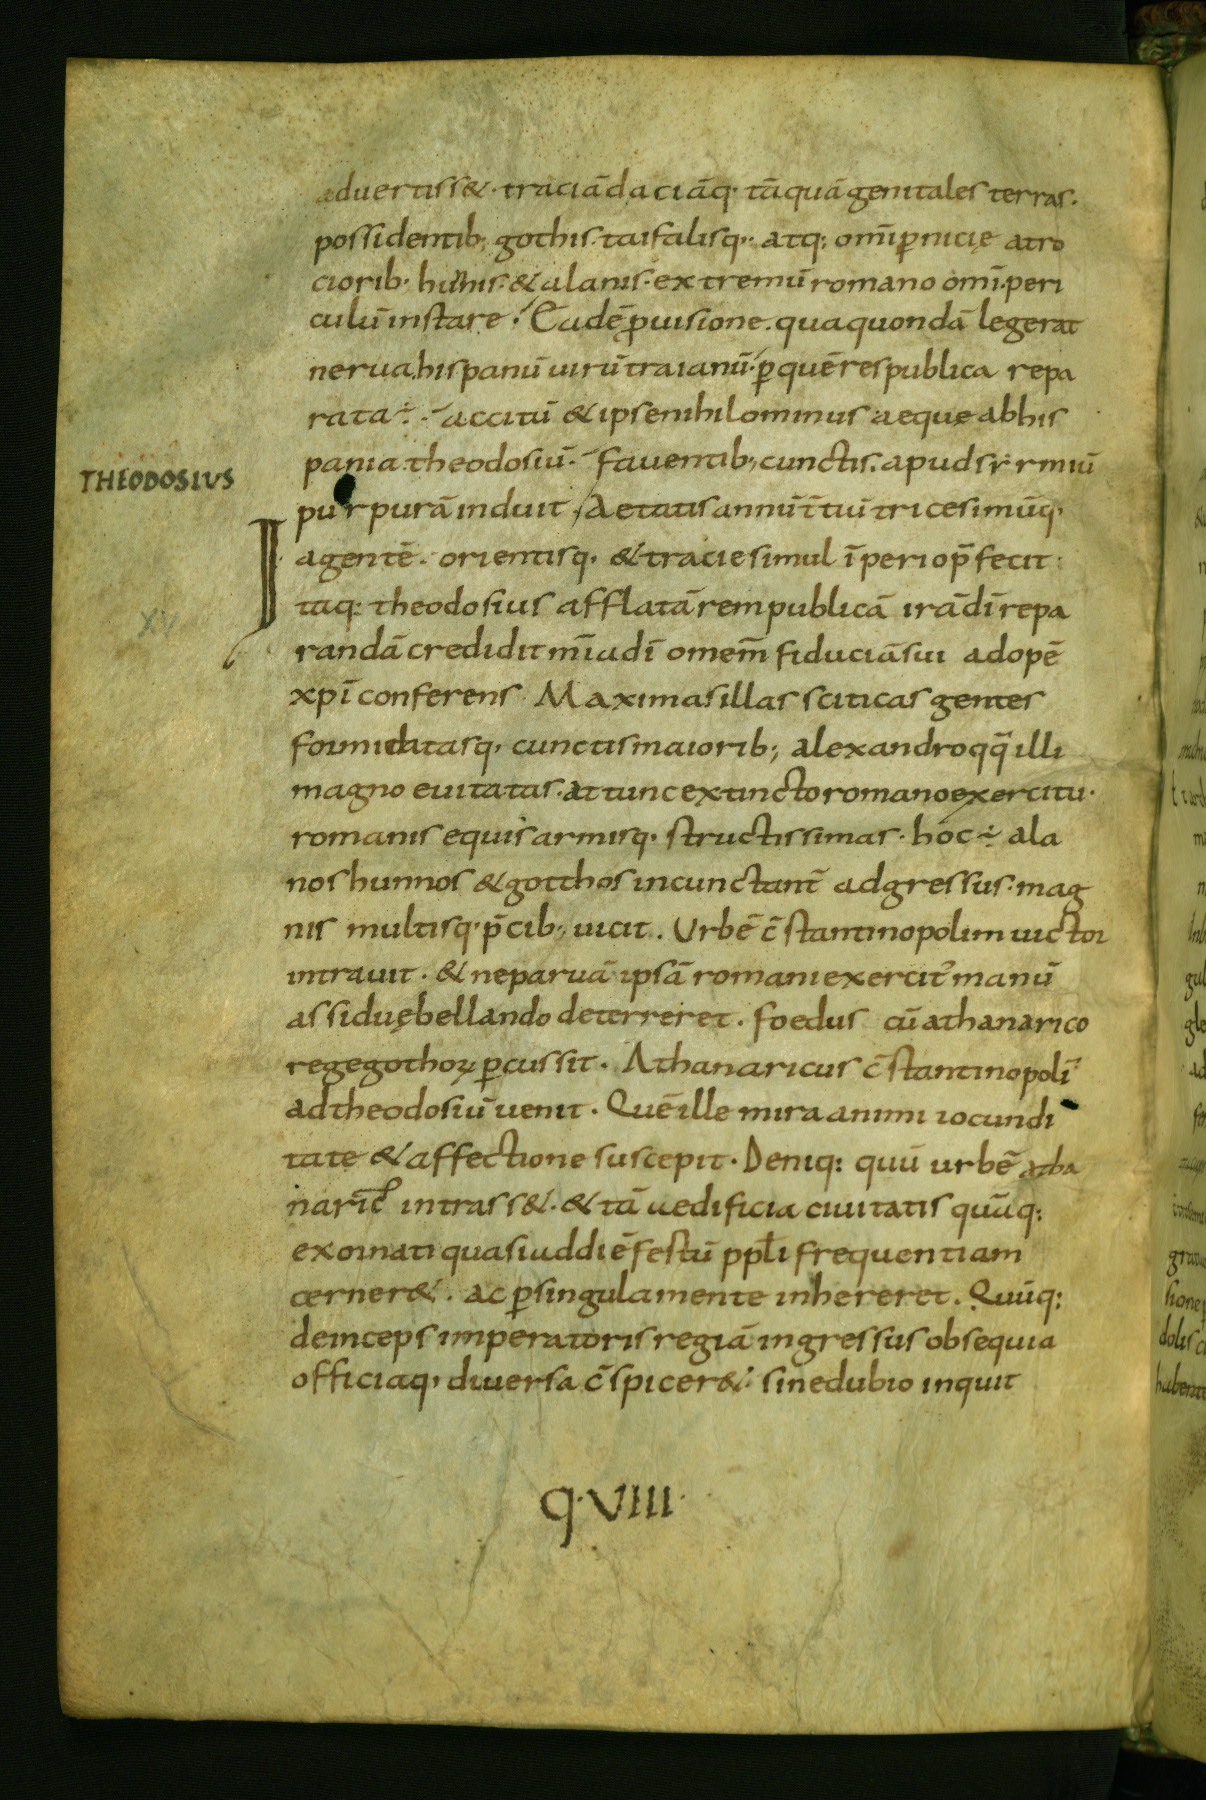 advertiss&. traciā daciāq· tāquā genitales terras.
possidentib; gothis. taifalisq·. atq: omī p̲nicię atro
ciorib· hunnis. & alanis. extremū romano omī. peri
culū instare. Eadē p̲uisione. qua quondā legerat
nerua. hispanū uirū traianū. p̲ quē respublica repa
rata ÷. accitū & ipse nihilominus aeque ab his
pania. theodosiū. fauentib; cunctis. apud sirmiū
THEODOSIUS
purpurā induit. Aetatis annū ītuī tricesimūq·
agentē. orientisq· & tracie simul īperio p̄fecit.
I
taq: theodosius afflatā rempublicā irā dī repa
randā credidit mīā dī omem̄ fiduciā sui ad opē
XV
xpī conferens. Maximas illas sciticas gentes
formidatasq· cunctis maiorib; alexandro qq̄ illi
magno euitatas. at tunc extincto romano exercitu.
romanis equis armisq· structissimas. hoc ÷ ala
nos hunnos & gotthos incunctant̄ adgressus. mag
nis multisq· p̄cib; uicit. Urbē c̄stantinopolim uictor
intrauit. & ne paruā ipsā romani exercit᾽ manū
assiduę bellando deterreret. foedus cū athanarico
rege gothoꝝ p̲cussit. Athanaricus c̄stantinopolī
ad theodosiū uenit. Quē ille mira animi iocundi
tate & affectione suscepit. Deniq: quū urbē atha
naric᾽ intrass&. & tā aedificia ciuitatis quāq:
exornati quasi ad diē festū pp̄li frequentiam
cerner&. ac p̲ singula mente inhereret. Quūq:
deinceps imperatoris regiā ingressus obsequia
officiaq· diuersa c̄spicer&. sine dubio inquit
q·VIII·